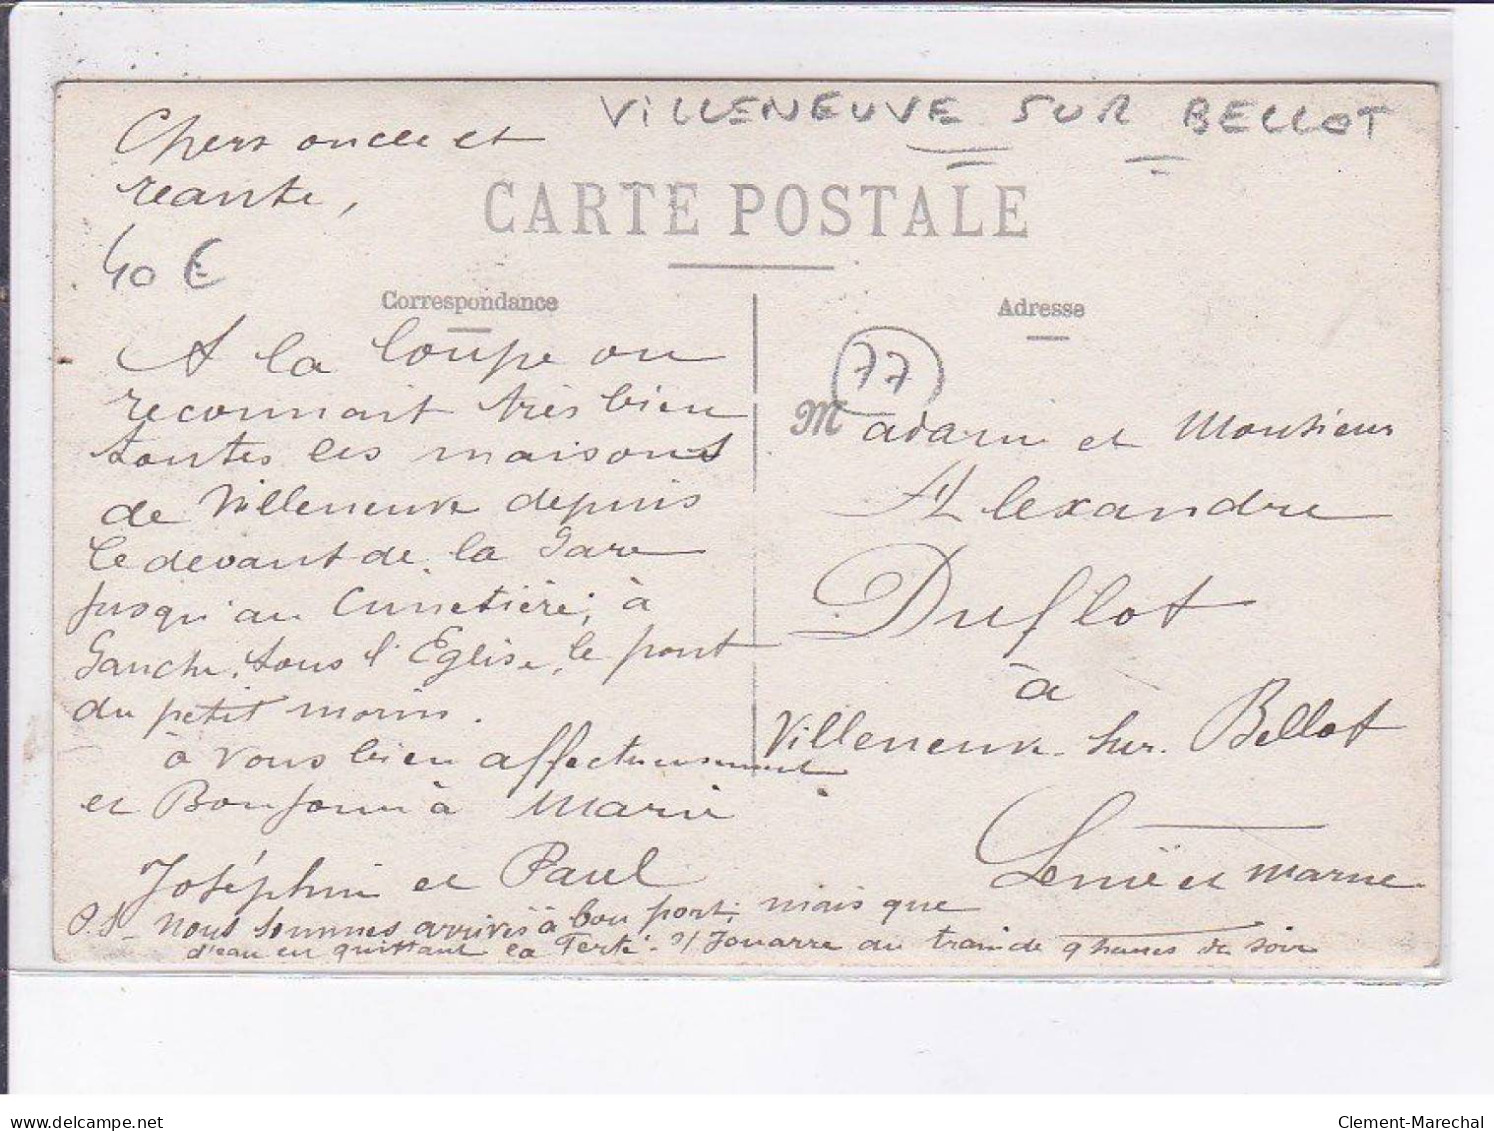 VILLENEUVE SUR BELLOT
Chers oncle et
tante,
CARTE POSTALE
40 €
Correspondance
Adresse
A la loupe on
reconnait très bien
toutes les maisons
de Villeneuve depuis
le devant de la Gare
jusqu'au Cimetière, à
Gauche, sous l'Eglise, le pont
du petit morin.
à vous bien affectueusement
et Bonjour à Marie
Joséphine et Paul
P.S. Nous sommes arrivés à bon port, mais que
d'eau en quittant la Ferté s/ Jouarre au train de 9 heures du soir
77
Madame et Monsieur
Alexandre
Duflot
à
Villeneuve sur Bellot
Seine et marne
delcampe.net
Clement-Marechal